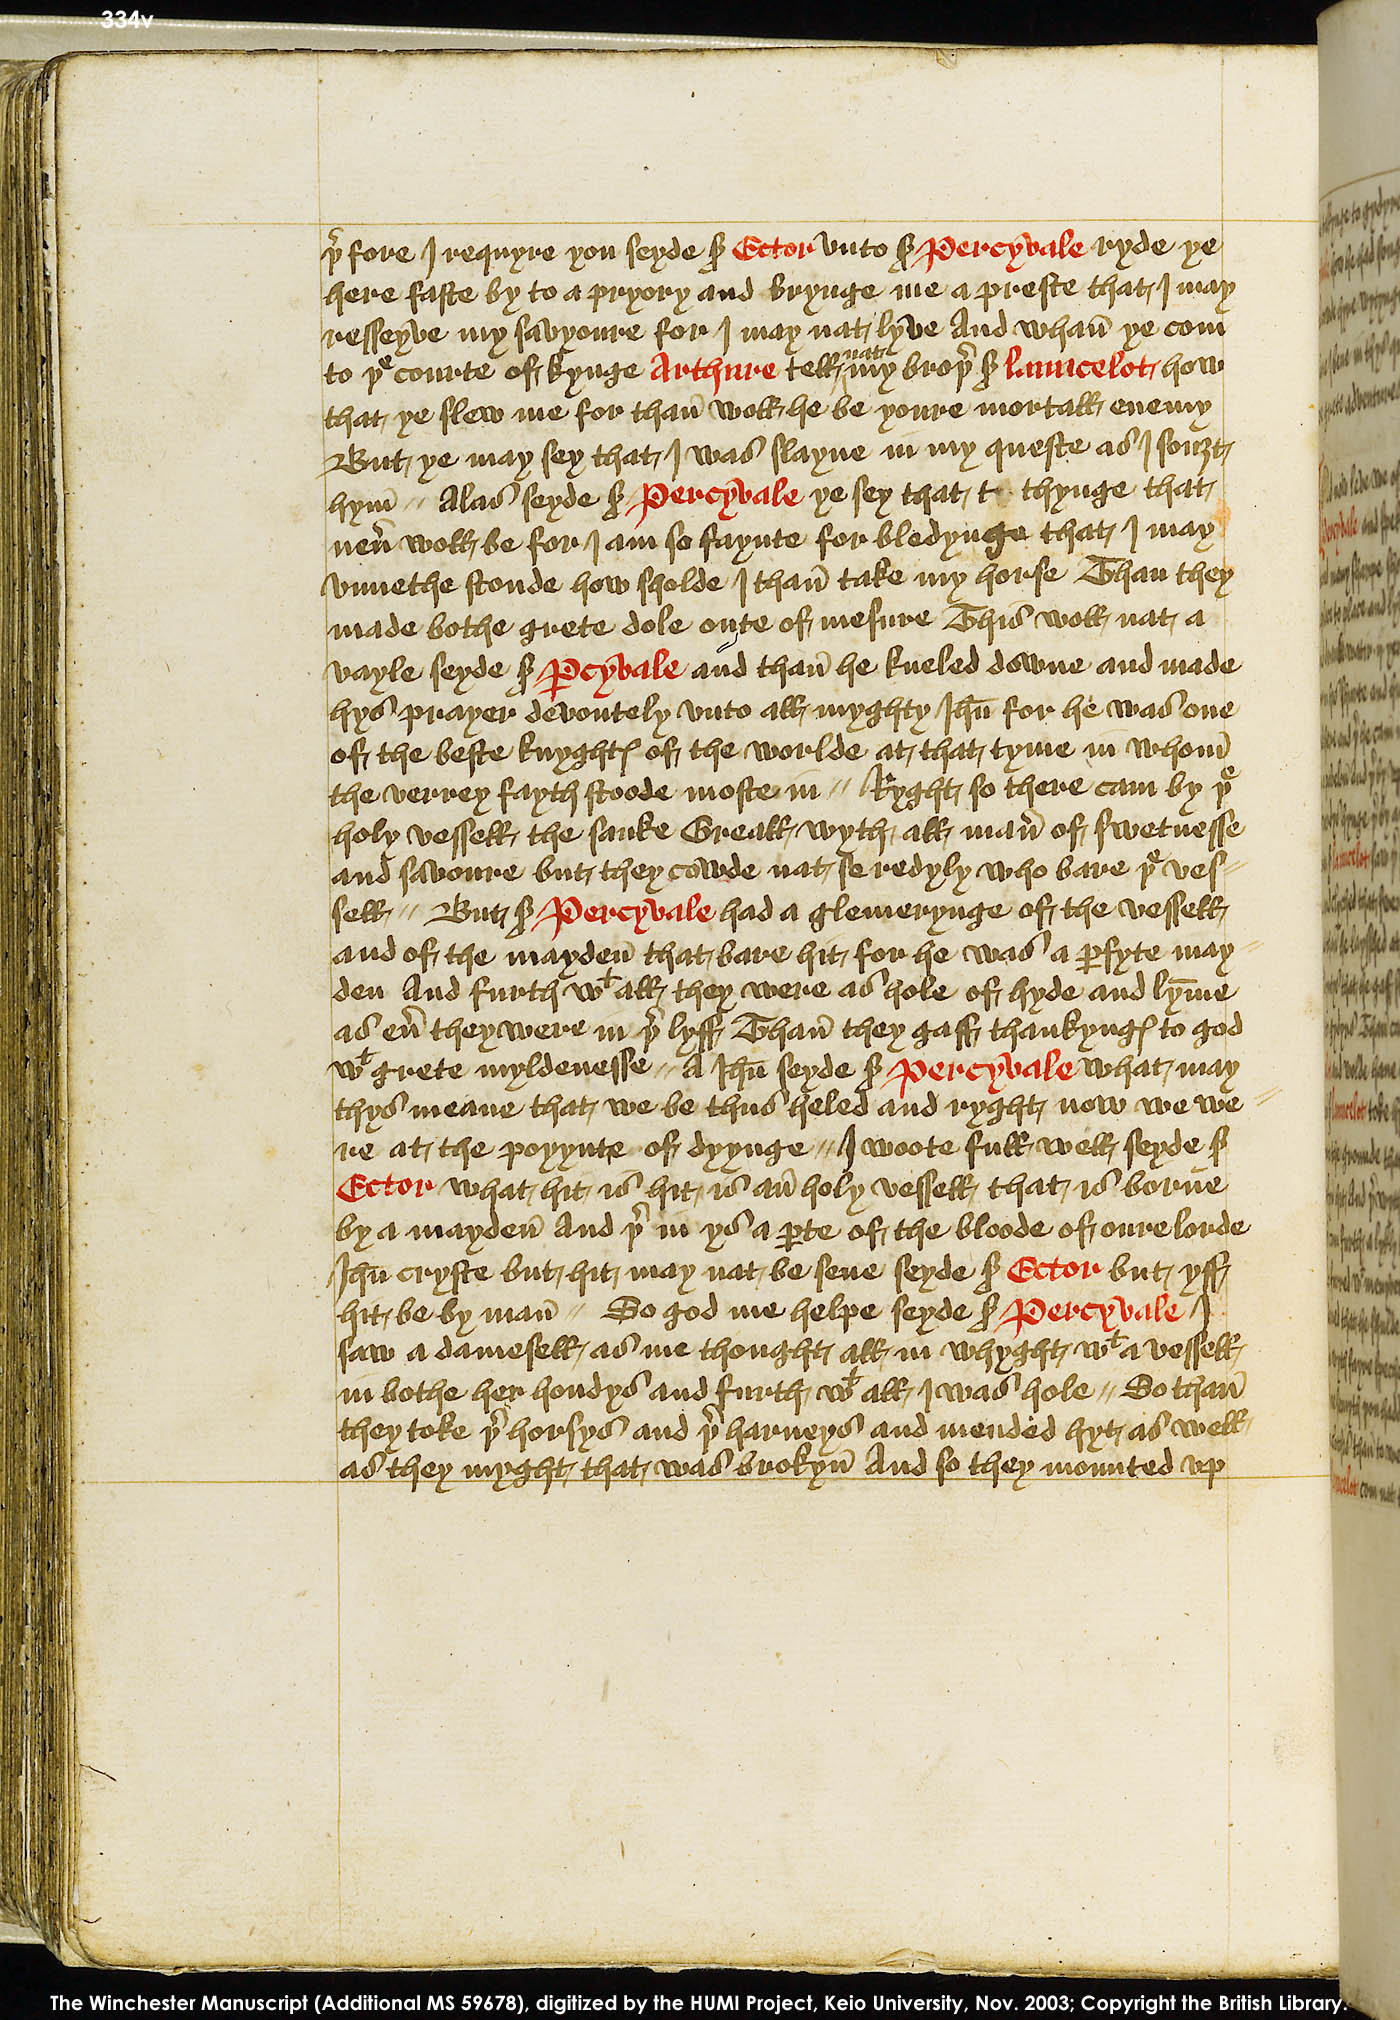 334v
þ͛fore I requyre you seyde ẜ Ector vnto ẜ Percyvale ryde ye
here faste by to a pryory and brynge me a preste that I may
resseyve my savyoure for I may nat lyve And whan̄ ye com
to þᵉ courte of kynge Arthure tell nat my broþ͛ ẜ launcelot how
that ye slew me for than̄ woll he be youre mortall enemy
But ye may sey that I was slayne in my queste as I souȝt
hym̄ // Alas seyde ẜ Percyvale ye sey that thynge that
neu͛ woll be for I am so faynte for bledynge that I may
vnnethe stonde how sholde I than̄ take my horse Than they
made bothe grete dole oute of mesure This woll nat a
vayle seyde ẜ ꝑcyvale and than̄ he kneled downe and made
hys prayer devoutely vnto all myghty Ihū for he was one
of the beste knyghtꝭ of the worlde at that tyme in whom̄
the verrey fayth stoode moste in // Ryght so there cam by þᵉ
holy vessell the sanke Greall wyth all man͛ of swetnesse
and savoure but they cowde nat se redyly who bare þᵉ ves⸗
sell // But ẜ Percyvale had a glemerynge of the vessell
and of the mayden̄ that bare hit for he was a ꝑfyte may⸗
den And furth wᵗ all they were as hole of hyde and lym̄e
as eu͛ they were in þ͛ lyff Than̄ they gaff thankyngꝭ to god
wᵗ grete myldenesse // A Ihū seyde ẜ Percyvale what may
thys meane that we be thus heled and ryght now we we⸗
re at the poyynte of dyynge // I woote full well seyde ẜ
Ector what hit is hit is an̄ holy vessell that is borne
by a mayden̄ And þ͛ in ys a ꝑte of the bloode of oure lorde
Ihū cryste but hit may nat be sene seyde ẜ Ector but yff
hit be by man̄ // So god me helpe seyde ẜ Percyvale I
saw a damesell as me thought all in whyght wᵗ a vessell
in bothe her hondys and furth wᵗ all I was hole // So than̄
they toke þ͛ horsys and þ͛ harneys and mended hyt as well
as they myght that was brokyn̄ And so they mounted vp
The Winchester Manuscript (Additional MS 59678), digitized by the HUMI Project, Keio University, Nov. 2003; Copyright the British Library.